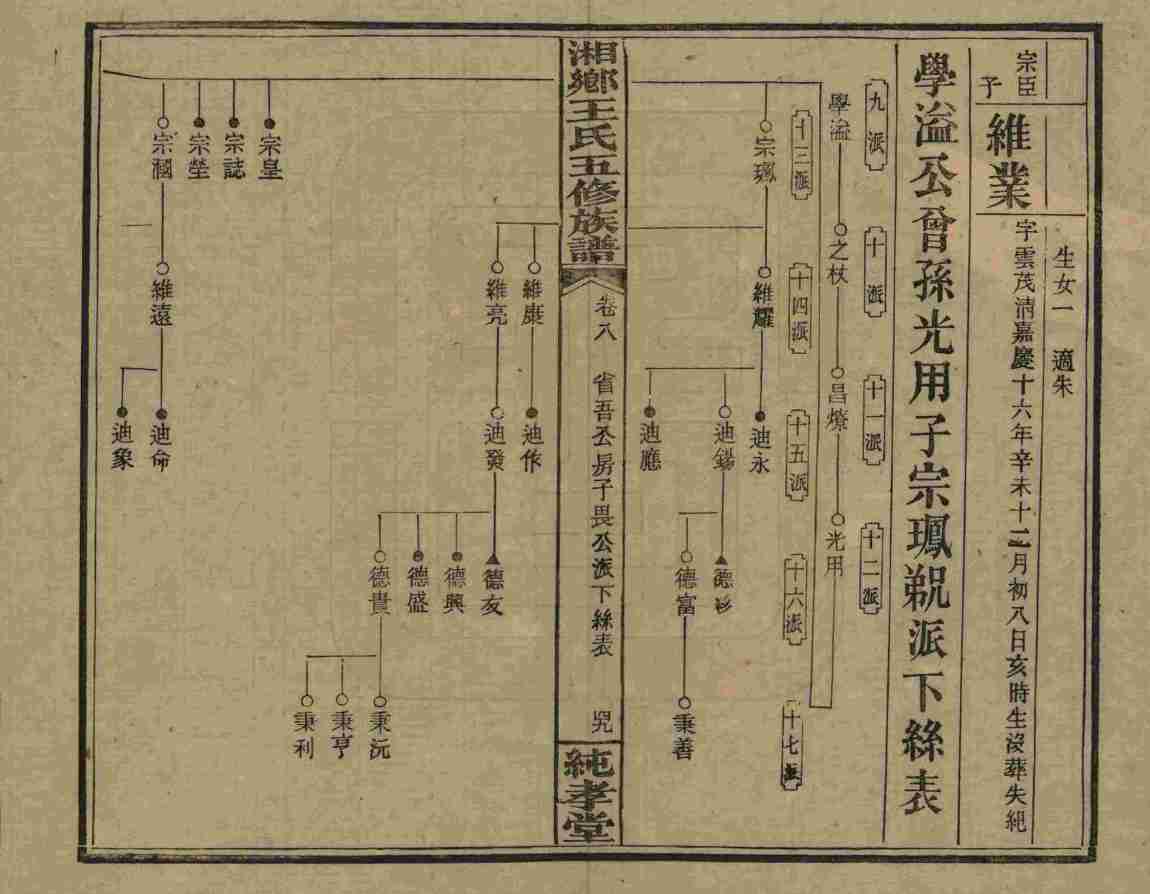 生女一 適朱
宗臣
子
維業
字雲茂清嘉慶十六年辛未十二月初八日亥時生沒葬失紀
學溢公曾孫光用子宗珮派下絲表
九派
十派
十一派
十二派
學溢
之杖
昌燎
光用
十三派
十四派
十五派
十六派
十七派
宗珮
維耀
迪永
迪錫
迪應
德彩
德富
秉善
湘鄉王氏五修族譜
卷八
省吾公房子畏公派下絲表
純孝堂
維康
維亮
迪作
迪發
德友
德興
德盛
德貴
秉沅
秉亨
秉利
宗皇
宗誌
宗瑩
宗瀾
維遠
迪命
迪象